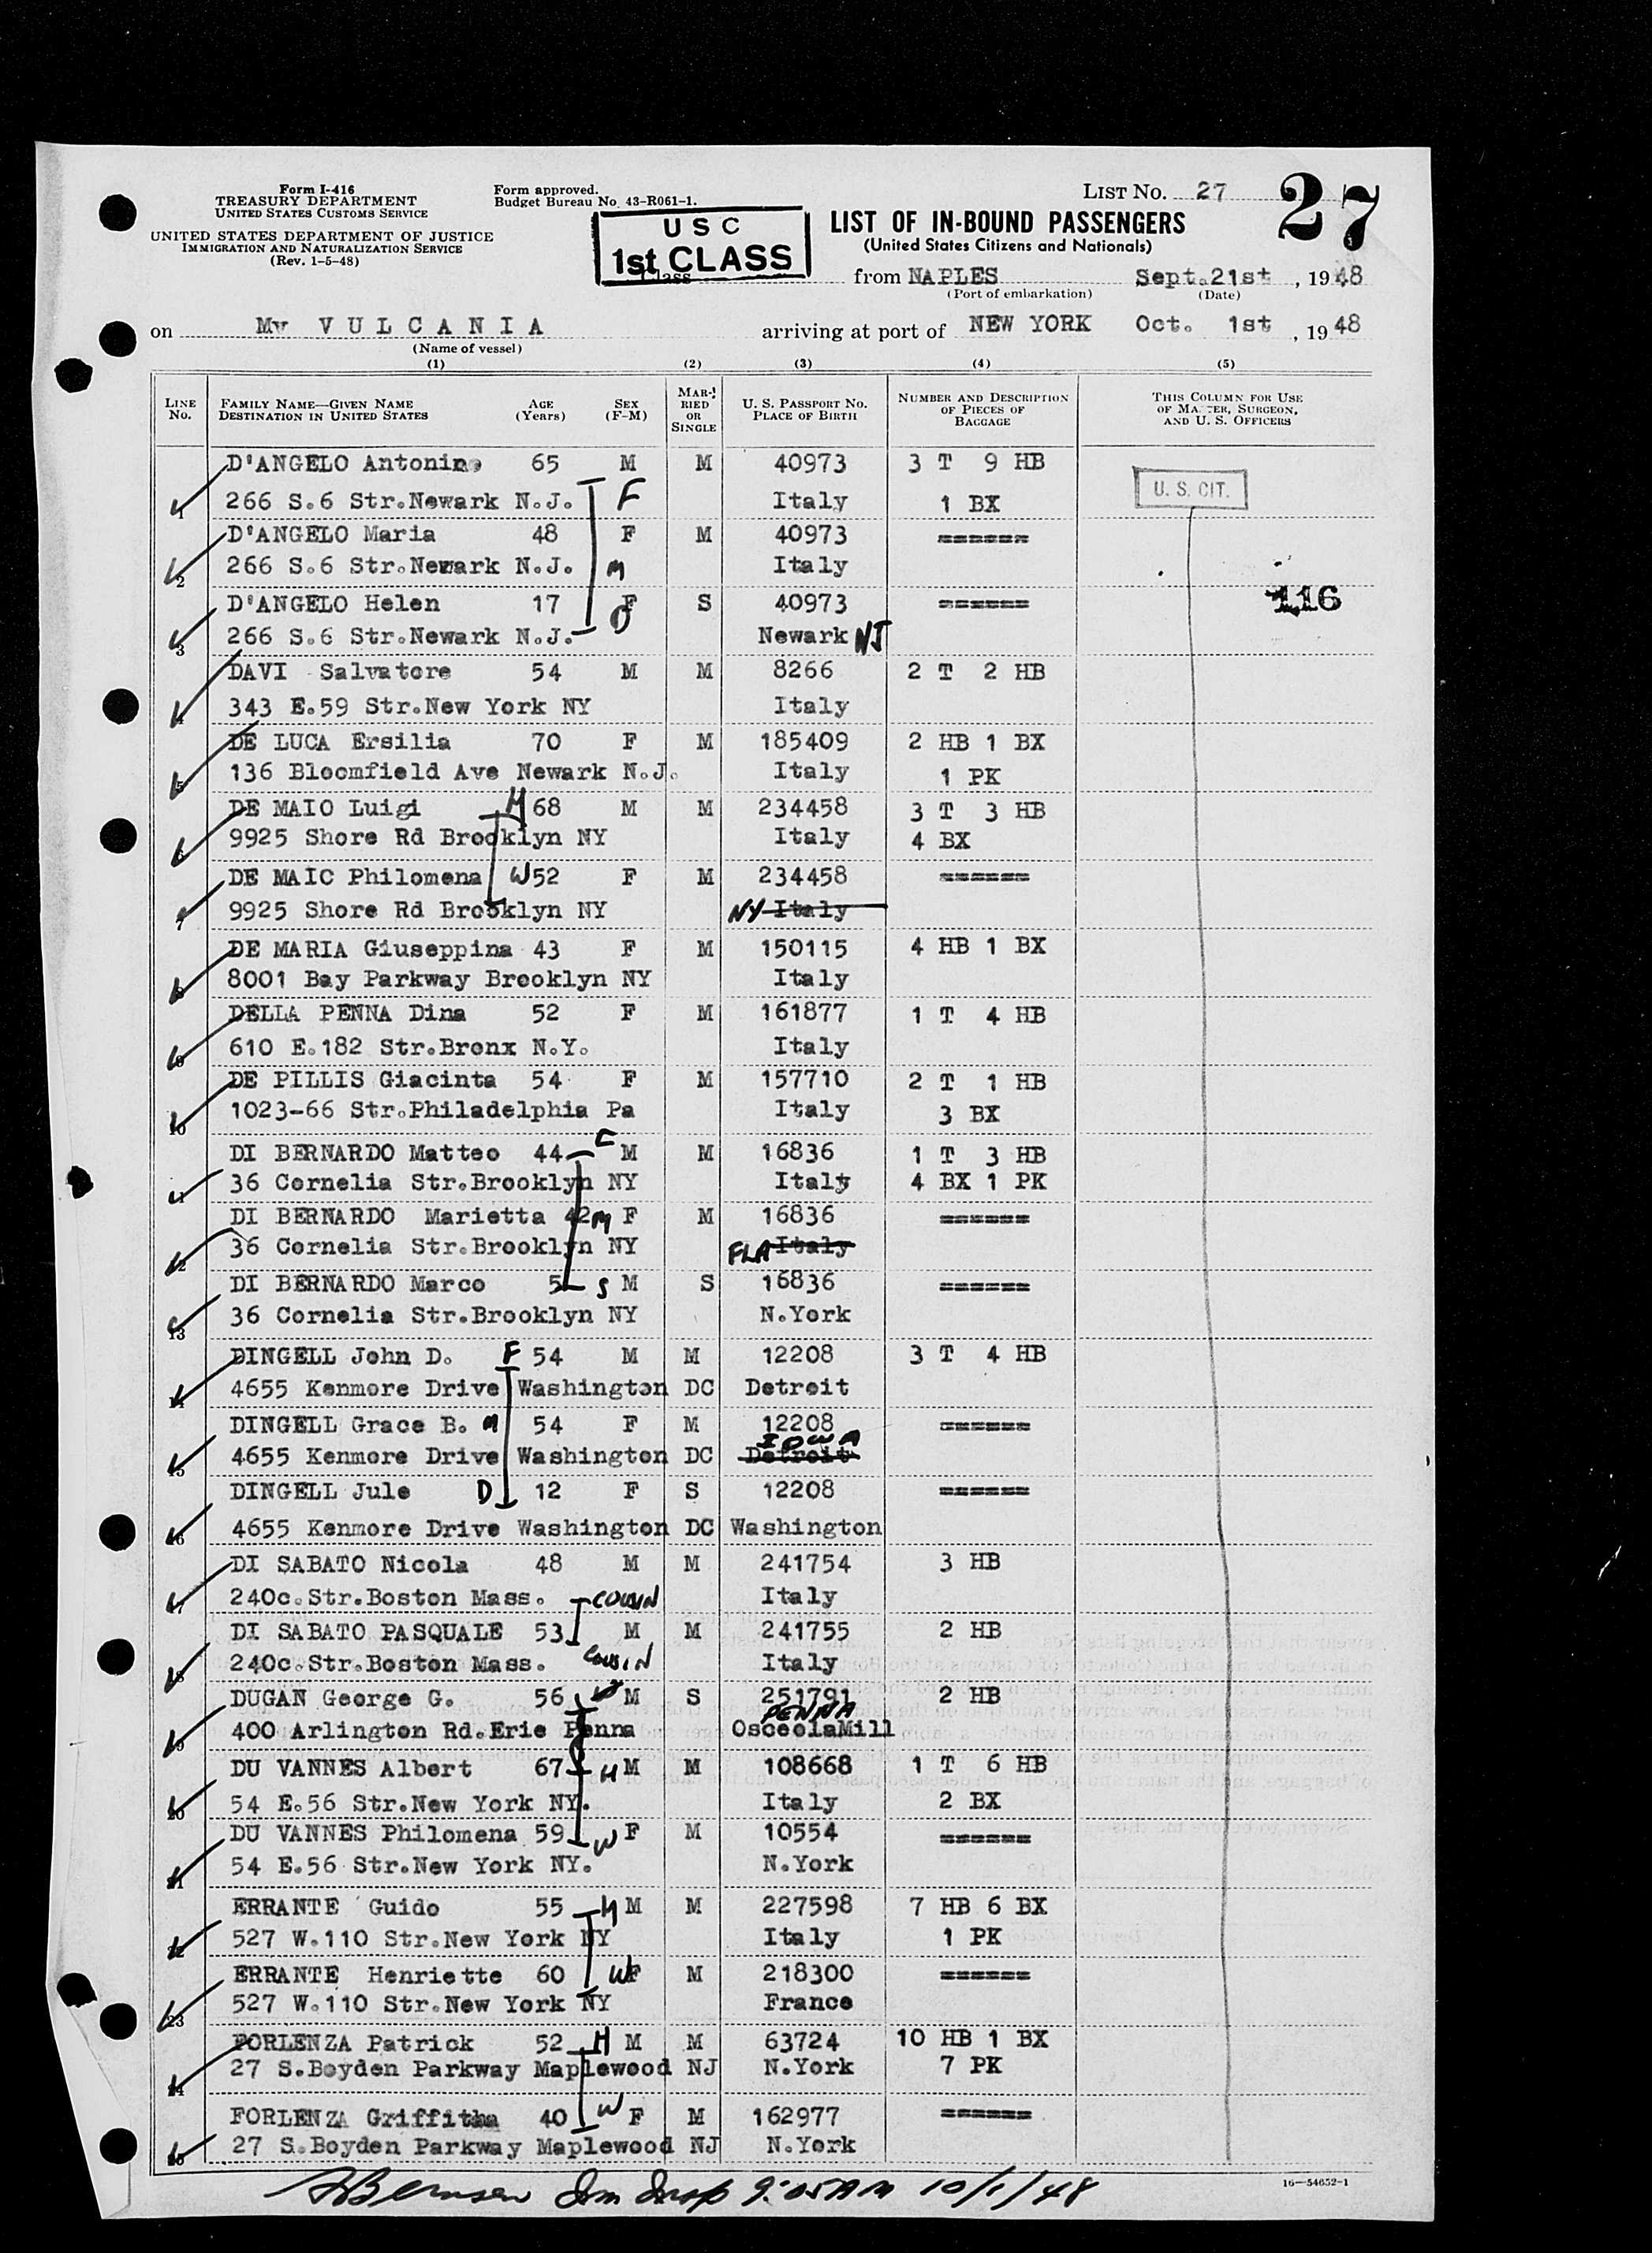 Form I-416
TREASURY DEPARTMENT
UNITED STATES CUSTOMS SERVICE
UNITED STATES DEPARTMENT OF JUSTICE
IMMIGRATION AND NATURALIZATION SERVICE
(Rev. 1-5-48)
Form approved.
Budget Bureau No. 43-R061-1.
USC
1st CLASS
Class
LIST NO. 27
27
LIST OF IN-BOUND PASSENGERS
(United States Citizens and Nationals)
from NAPLES Sept.21st, 1948
(Port of embarkation) (Date)
on Mv VULCANIA arriving at port of NEW YORK Oct. 1st, 1948
(Name of vessel)
(1) (2) (3) (4) (5)
LINE NO. FAMILY NAME—GIVEN NAME DESTINATION IN UNITED STATES AGE (Years) SEX (F-M) MARRIED OR SINGLE U. S. PASSPORT NO. PLACE OF BIRTH NUMBER AND DESCRIPTION OF PIECES OF BAGGAGE THIS COLUMN FOR USE OF MASTER, SURGEON, AND U. S. OFFICERS
D'ANGELO Antonino 65 M M 40973 3 T 9 HB
1 266 S.6 Str.Newark N.J. F Italy 1 BX U. S. CIT.
D'ANGELO Maria 48 F M 40973 ======
2 266 S.6 Str.Newark N.J. M Italy
D'ANGELO Helen 17 F S 40973 ====== 116
3 266 S.6 Str.Newark N.J. D Newark NJ
DAVI Salvatore 54 M M 8266 2 T 2 HB
4 343 E.59 Str.New York NY Italy
DE LUCA Ersilia 70 F M 185409 2 HB 1 BX
5 136 Bloomfield Ave Newark N.J. Italy 1 PK
DE MAIO Luigi H 68 M M 234458 3 T 3 HB
6 9925 Shore Rd Brooklyn NY Italy 4 BX
DE MAIO Philomena W 52 F M 234458 ======
7 9925 Shore Rd Brooklyn NY NY Italy
DE MARIA Giuseppina 43 F M 150115 4 HB 1 BX
8 8001 Bay Parkway Brooklyn NY Italy
DELLA PENNA Dina 52 F M 161877 1 T 4 HB
9 610 E.182 Str.Bronx N.Y. Italy
DE PILLIS Giacinta 54 F M 157710 2 T 1 HB
10 1023-66 Str.Philadelphia Pa Italy 3 BX
DI BERNARDO Matteo 44 F M M 16836 1 T 3 HB
11 36 Cornelia Str.Brooklyn NY Italy 4 BX 1 PK
DI BERNARDO Marietta 42 M F M 16836 ======
12 36 Cornelia Str.Brooklyn NY FLA Italy
DI BERNARDO Marco 5 S M S 16836 ======
13 36 Cornelia Str.Brooklyn NY N.York
DINGELL John D. F 54 M M 12208 3 T 4 HB
14 4655 Kenmore Drive Washington DC Detroit
DINGELL Grace B. M 54 F M 12208 ======
15 4655 Kenmore Drive Washington DC IOWA Detroit
DINGELL Jule D 12 F S 12208 ======
16 4655 Kenmore Drive Washington DC Washington
DI SABATO Nicola 48 M M 241754 3 HB
17 240c.Str.Boston Mass. COUSIN Italy
DI SABATO PASQUALE 53 M M 241755 2 HB
18 240c.Str.Boston Mass. COUSIN Italy
DUGAN George G. 56 M S 251791 2 HB
19 400 Arlington Rd.Erie Penna PENNA OsceolaMill
DU VANNES Albert 67 H M M 108668 1 T 6 HB
20 54 E.56 Str.New York NY. Italy 2 BX
DU VANNES Philomena 59 W F M 10554 ======
21 54 E.56 Str.New York NY. N.York
ERRANTE Guido 55 H M M 227598 7 HB 6 BX
22 527 W.110 Str.New York NY Italy 1 PK
ERRANTE Henriette 60 W F M 218300 ======
23 527 W.110 Str.New York NY France
FORLENZA Patrick 52 H M M 63724 10 HB 1 BX
24 27 S.Boyden Parkway Maplewood NJ N.York 7 PK
FORLENZA Griffitha 40 W F M 162977 ======
25 27 S.Boyden Parkway Maplewood NJ N.York
Imm Insp 9:05AM 10/1/48
16—54652-1